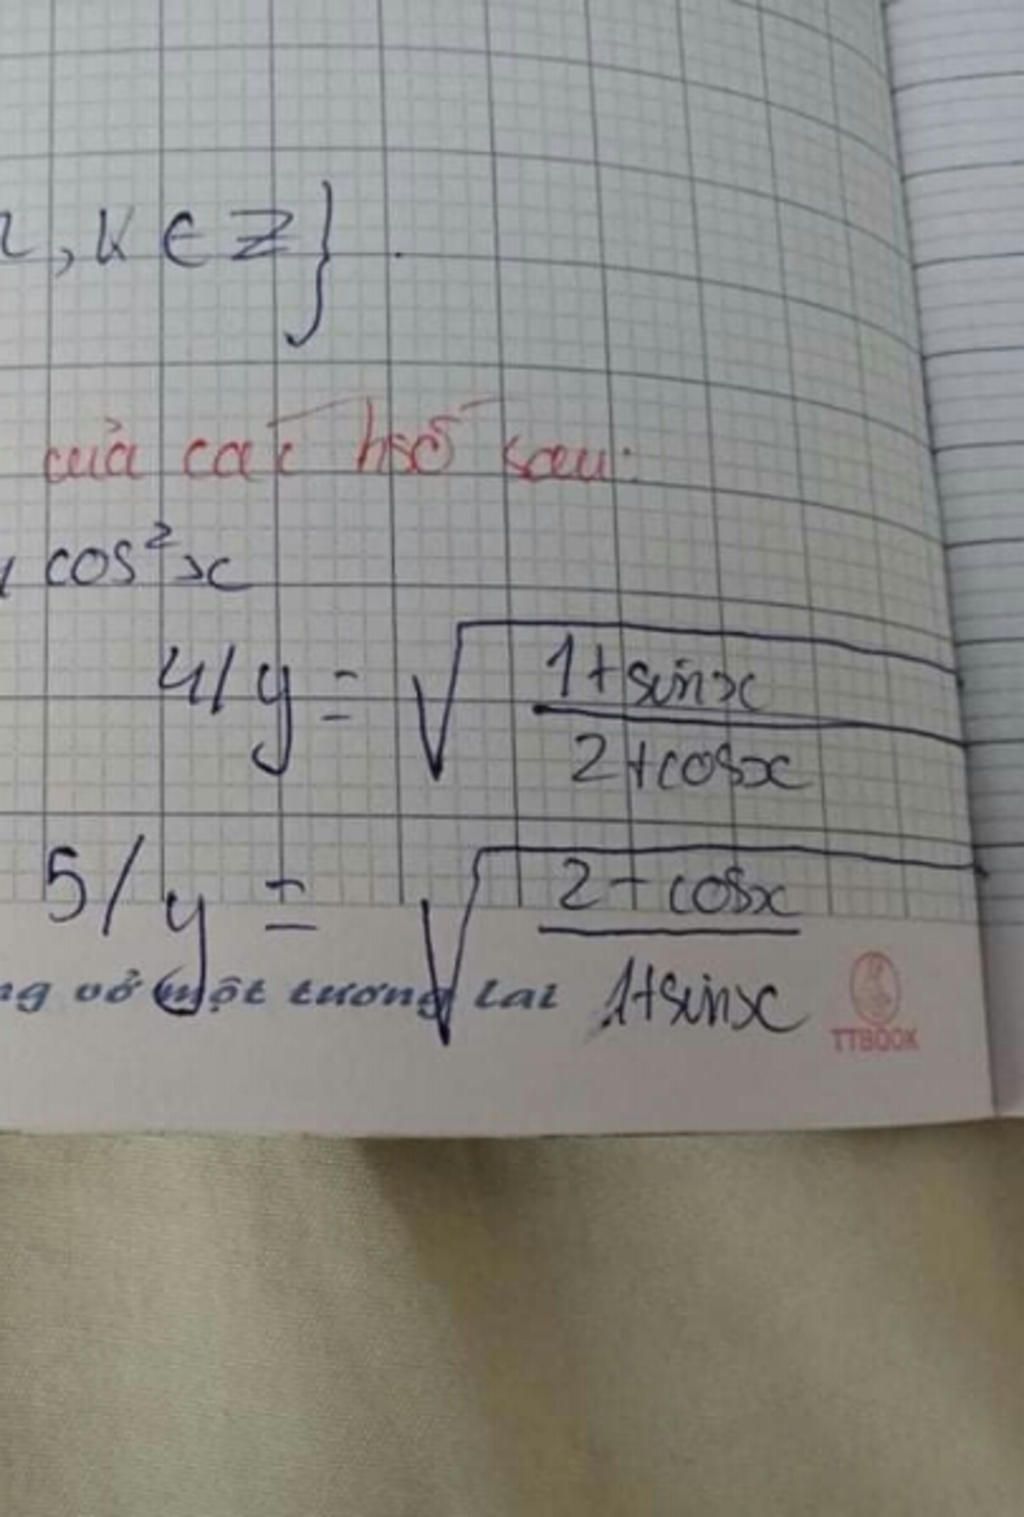 , k ∈ Z} .
của các hsố sau:
cos²x
4/ y = √(1+sinx / 2+cosx)
5/ y = √(2+cosx / 1+sinx)
vở một tương lai
TTBOOK